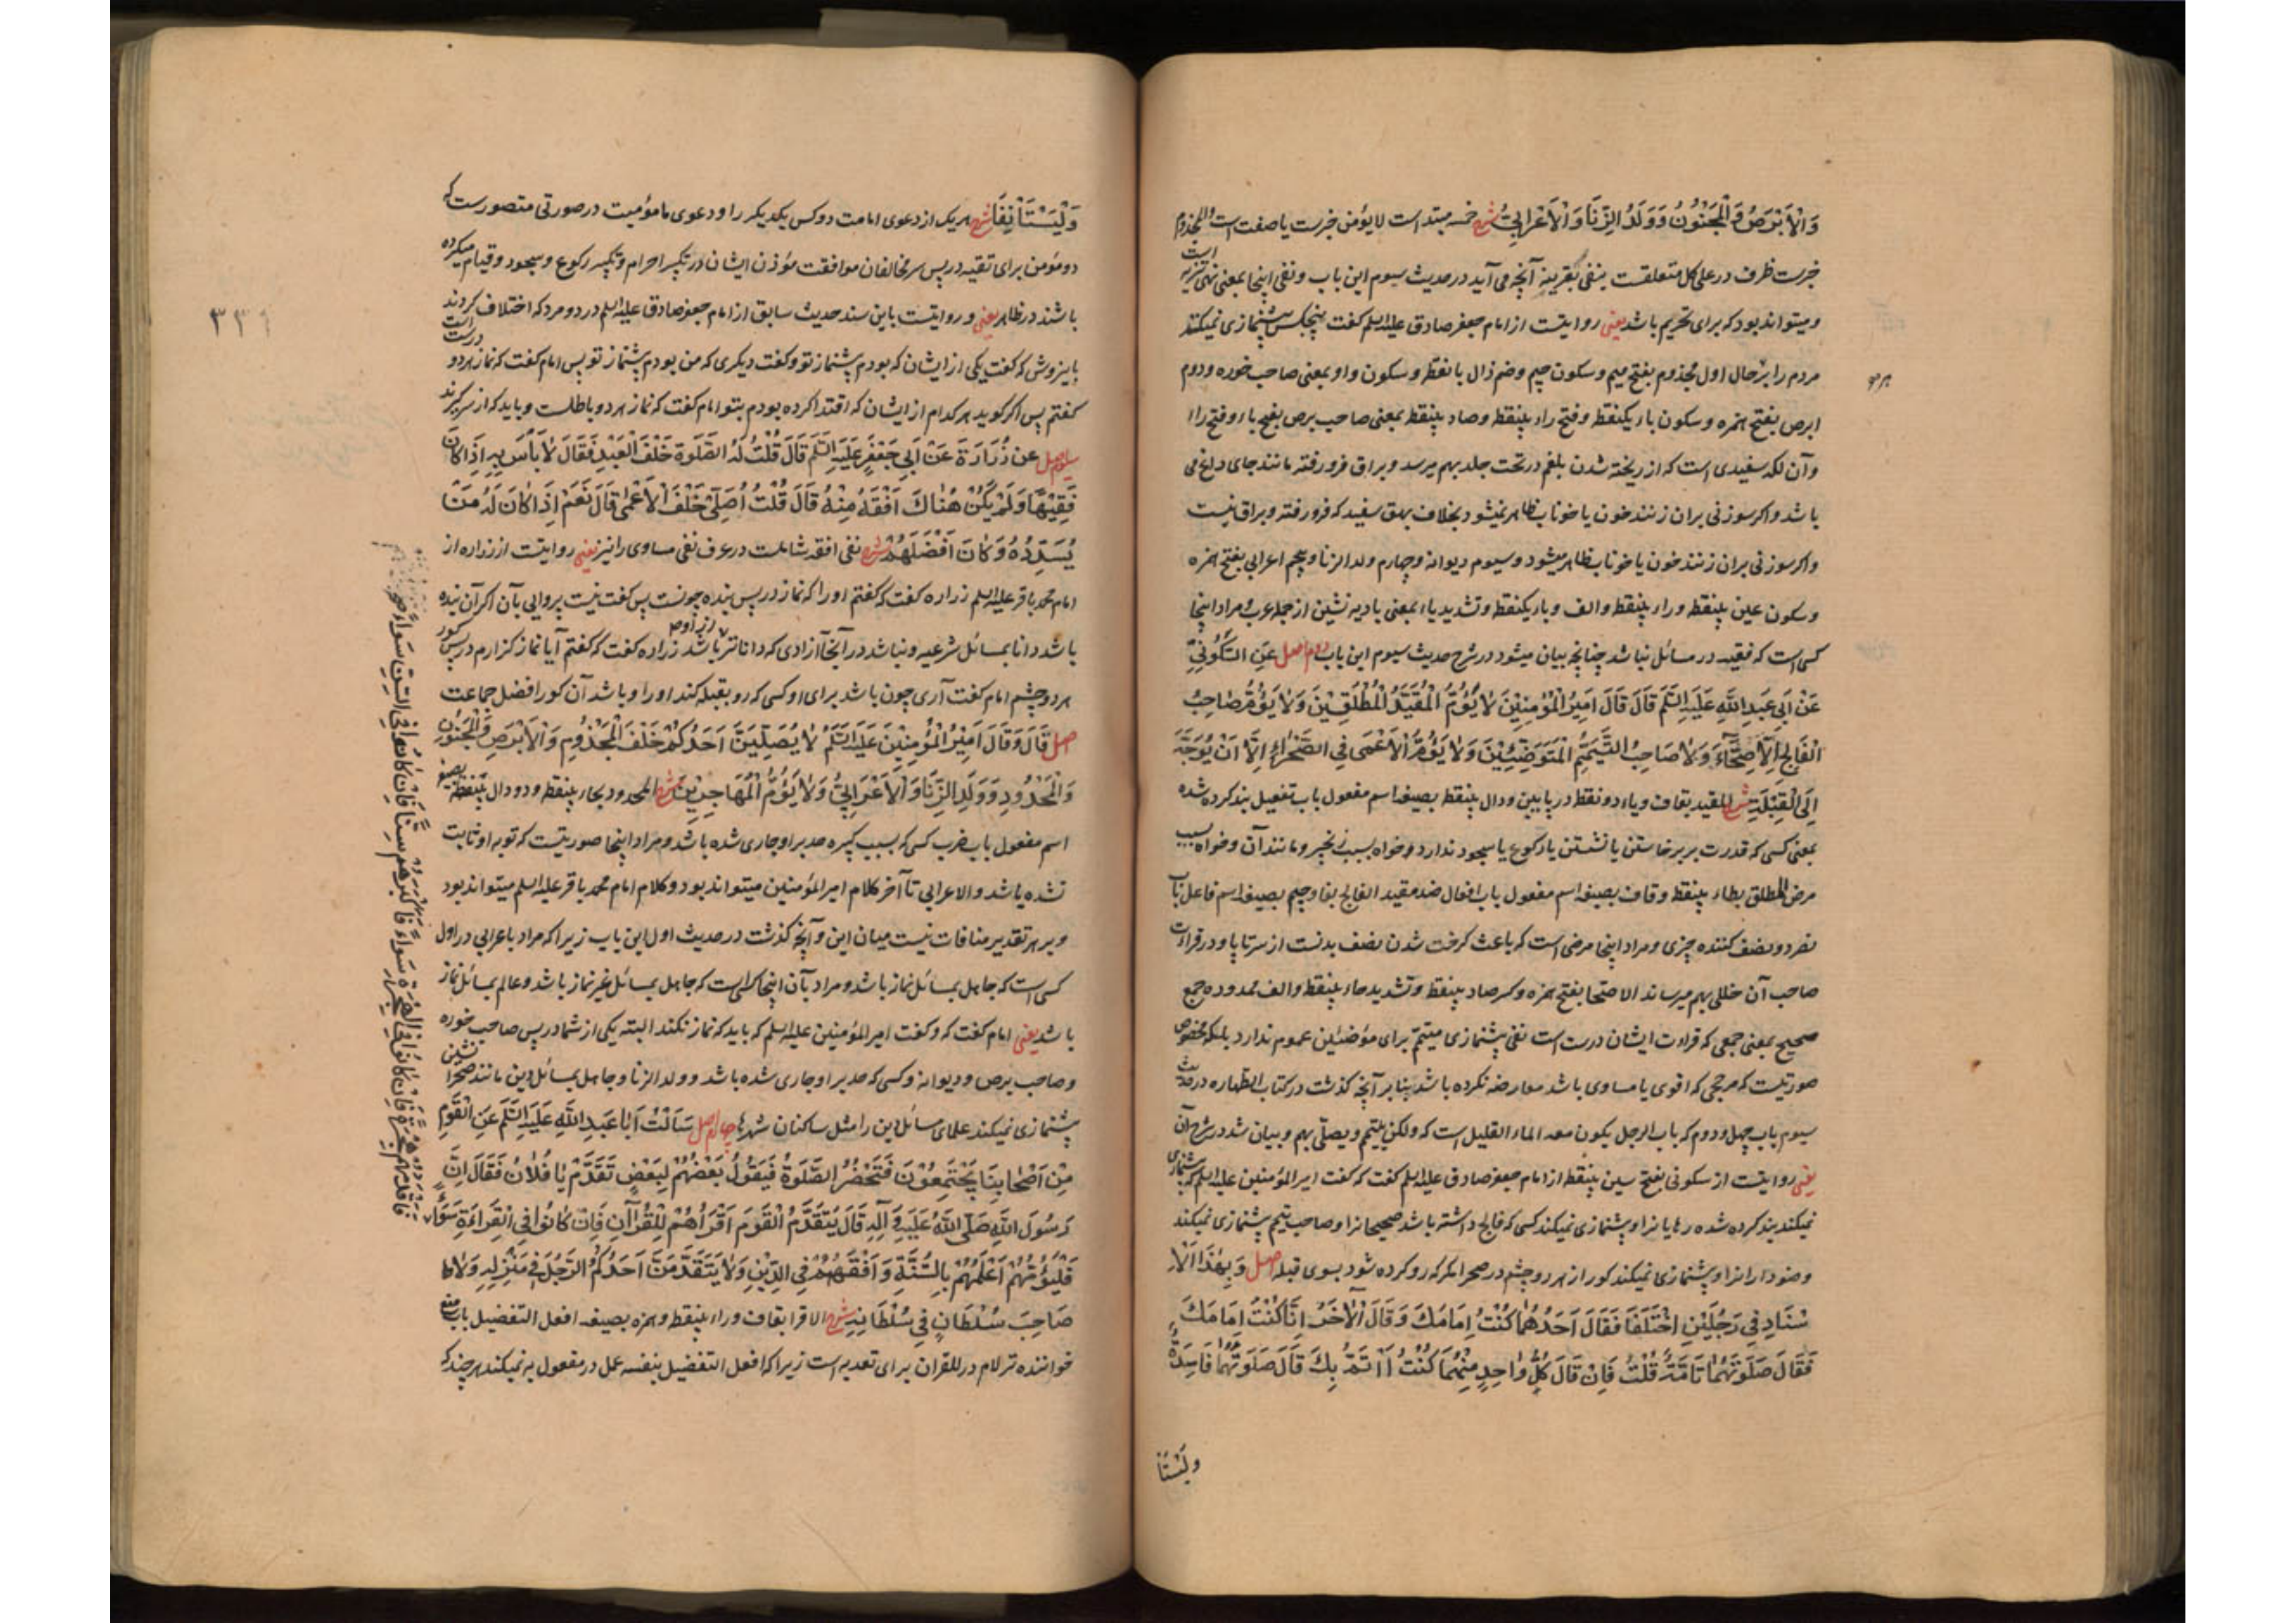 وَالْاَبْرَصُ وَالْمَجْنُونُ وَوَلَدُ الزِّنَا وَالْاَعْرَابِيُّ شرح خمسه مبتداست لا یؤمن خبرست یا صفت است والمجذوم
خبرست ظرف در علی کل متعلقست بنفی بقرینه آنچه می آید در حدیث سیوم این باب و نفی اینجا بمعنی نهی تنزیه است
و میتواند بود که برای تحریم باشد یعنی روایتست از امام جعفر صادق علیه السلم گفت پنج کس پیشنمازی نمیکنند
مردم را بر حال اول مجذوم بفتح میم و سکون جیم و ضم ذال با نقطه و سکون واو بمعنی صاحب خوره و دوم
ابرص بفتح همزه و سکون باء یکنقطه و فتح راء بینقطه و صاد بینقطه بمعنی صاحب برص بفتح باء و فتح راء
و آن لکه سفیدی است که از ریخته شدن بلغم در تحت جلد بهم میرسد و براق فرو رفته مانند جای داغ می
باشد و اکر سوزنی بران زنند خون یا خوناب ظاهر نمیشود بخلاف بهق سفید که فرو رفته و براق نیست
و اکر سوزنی بران زنند خون یا خوناب ظاهر میشود و سیوم دیوانه و چهارم ولد الزنا و پنجم اعرابی بفتح همزه
و سکون عین بینقطه و راء بینقطه و الف و باء یکنقطه و تشدید یاء بمعنی بادیه نشین از جمله عرب و مراد اینجا
کسی است که فقیه در مسائل نباشد چنانچه بیان میشود در شرح حدیث سیوم این باب دوم اصل عَنِ السَّكُونِيِّ
عَنْ اَبِي عَبْدِ اللّٰهِ عَلَيْهِ السَّلَمُ قَالَ قَالَ اَمِيرُ الْمُؤْمِنِيْنَ لَا يَؤُمُّ الْمُقَيَّدُ الْمُطْلَقِيْنَ وَلَا يَؤُمُّ صَاحِبُ
الْفَالِجِ الْاَصِحَّاءَ وَلَا صَاحِبُ التَّيَمُّمِ الْمُتَوَضِّئِيْنَ وَلَا يَؤُمُّ الْاَعْمٰى فِي الصَّحْرَاءِ اِلَّا اَنْ يُوَجَّهَ
اِلَى الْقِبْلَةِ شرح المقید بقاف و یاء دو نقطه در پایین و دال بینقطه بصیغه اسم مفعول باب تفعیل بند کرده شده
بمعنی کسی که قدرت بر برخاستن یا نشستن یا رکوع یا سجود ندارد و خواه بسبب زنجیر و مانند آن و خواه بسبب
مرض المطلق بطاء بینقطه و قاف بصیغه اسم مفعول باب افعال ضد مقید الفالج بفا و جیم بصیغه اسم فاعل باب
نصر دو نصف کننده چیزی و مراد اینجا مرضی است که باعث کرخت شدن نصف بدنست از سر تا پا و در قراءت
صاحب آن خللی بهم میرساند الاصحا بفتح همزه و کسر صاد بینقطه و تشدید حاء بینقطه و الف ممدوده جمع
صحیح بمعنی جمعی که قراءت ایشان درست است نفی پیشنمازی متیمّم برای متوضئین عموم ندارد بلکه مخصوص
صورتیست که مرجحی که اقوی یا مساوی باشد معارضه نکرده باشد بنابر آنچه کذشت در کتاب الطهاره در حدیث
سیوم باب چهل و دوم که باب الرجل یکون معه الماء القلیل است که ولکن یتیمم و یصلّی بهم و بیان شد در شرح آن
یعنی روایتست از سکونی بفتح سین بینقطه از امام جعفر صادق علیه السلم گفت که گفت امیر المؤمنین علیه السلم که پیشنمازی
نمیکند بند کرده شده رهایانرا و پیشنمازی نمیکند کسی که فالج داشته باشد صحیحانرا و صاحب تیمم پیشنمازی نمیکند
وضو دارانرا و پیشنمازی نمیکند کور از هر دو چشم در صحرا مکر که رو کرده شود بسوی قبله اصل وَبِهٰذَا الْاِ
سْنَادِ فِي رَجُلَيْنِ اخْتَلَفَا فَقَالَ اَحَدُهُمَا كُنْتُ اِمَامَكَ وَقَالَ الْاٰخَرُ اَنَا كُنْتُ اِمَامَكَ
فَقَالَ صَلٰوتُهُمَا تَامَّةٌ قُلْتُ فَاِنْ قَالَ كُلُّ وَاحِدٍ مِنْهُمَا كُنْتُ اَاْتَمُّ بِكَ قَالَ صَلٰوتُهُمَا فَاسِدَةٌ
ولیستا
٣٣٦
وَلْيَسْتَاْنِفَا شرح هر یک از دعوی امامت دو کس یکدیکر را و دعوی مامومیت در صورتی متصورست که
دو مؤمن برای تقیه در پس مخالفان موافقت مؤذن ایشان در تکبیر احرام و تکبیر رکوع و سجود و قیام میکرده
باشند در ظاهر یعنی و روایتست باین سند حدیث سابق از امام جعفر صادق علیه السلم در دو مرد که اختلاف کردند
باینروش که گفت یکی از ایشان که بودم پیشنماز تو و گفت دیکری که من بودم پیشنماز تو پس امام گفت که نماز هر دو درست است
گفتم پس اکر کوید هر کدام از ایشان که اقتدا کرده بودم بتو امام گفت که نماز هر دو باطلست و باید که از سر کیرند
سیوم اصل عَنْ زُرَارَةَ عَنْ اَبِي جَعْفَرٍ عَلَيْهِ السَّلَمُ قَالَ قُلْتُ لَهُ الصَّلٰوةُ خَلْفَ الْعَبْدِ فَقَالَ لَا بَأْسَ بِهِ اِذَا كَانَ
فَقِيْهًا وَلَمْ يَكُنْ هُنَاكَ اَفْقَهُ مِنْهُ قَالَ قُلْتُ اُصَلِّيْ خَلْفَ الْاَعْمٰى قَالَ نَعَمْ اِذَا كَانَ لَهُ مَنْ
يُسَدِّدُهُ وَكَانَ اَفْضَلَهُمْ شرح نفی افقه شاملست در عرف نفی مساوی را نیز یعنی روایتست از زراره از
امام محمد باقر علیه السلم زراره گفت که گفتم او را که نماز در پس بنده چونست پس گفت نیست پروایی بآن اکر آن بنده
باشد دانا بمسائل شرعیه و نباشد در آنجا آزادی که داناتر باشد زراره گفت که گفتم آیا نماز کزارم در پس کور
هر دو چشم امام گفت آری چون باشد برای او کسی که رو بقبله کند او را و باشد آن کور افضل جماعت
اصل قَالَ وَقَالَ اَمِيْرُ الْمُؤْمِنِيْنَ عَلَيْهِ السَّلَمُ لَا يُصَلِّيَنَّ اَحَدُكُمْ خَلْفَ الْمَجْذُوْمِ وَالْاَبْرَصِ وَالْمَجْنُوْنِ
وَالْمَحْدُوْدِ وَوَلَدِ الزِّنَا وَالْاَعْرَابِيُّ وَلَا يَؤُمُّ الْمُهَاجِرِيْنَ شرح المحدود بحاء بینقطه و دو دال بینقطه بصیغه
اسم مفعول باب ضرب کسی که بسبب کبیره حد بر او جاری شده باشد و مراد اینجا صورتیست که توبه او ثابت
نشده باشد و الاعرابی تا آخر کلام امیر المؤمنین میتواند بود و کلام امام محمد باقر علیه السلم میتواند بود
و بر هر تقدیر منافات نیست میان این و آنچه کذشت در حدیث اول این باب زیرا که مراد باعرابی در اول
کسی است که جاهل بمسائل نماز باشد و مراد بآن اینجا کسی است که جاهل بمسائل غیر نماز باشد و عالم بمسائل نماز
باشد یعنی امام گفت که و گفت امیر المؤمنین علیه السلم که باید که نماز نکند البته یکی از شما در پس صاحب خوره
و صاحب برص و دیوانه و کسی که حد بر او جاری شده باشد و ولد الزنا و جاهل بمسائل دین مانند صحرا نشین
پیشنمازی نمیکند علمای مسائل دین را مثل ساکنان شهرها چهارم اصل سَاَلْتُ اَبَا عَبْدِ اللّٰهِ عَلَيْهِ السَّلَمُ عَنِ الْقَوْمِ
مِنْ اَصْحَابِنَا يَجْتَمِعُوْنَ فَتَحْضُرُ الصَّلٰوةُ فَيَقُوْلُ بَعْضُهُمْ لِبَعْضٍ تَقَدَّمْ يَا فُلَانُ فَقَالَ اِنَّ
رَسُوْلَ اللّٰهِ صَلَّى اللّٰهُ عَلَيْهِ وَاٰلِهِ قَالَ يَتَقَدَّمُ الْقَوْمَ اَقْرَاُهُمْ لِلْقُرْاٰنِ فَاِنْ كَانُوْا فِي الْقِرَاءَةِ سَوَاءً
فَلْيَؤُمَّهُمْ اَعْلَمُهُمْ بِالسُّنَّةِ وَاَفْقَهُهُمْ فِي الدِّيْنِ وَلَا يَتَقَدَّمَنَّ اَحَدُكُمُ الرَّجُلَ فِي مَنْزِلِهِ وَلَا
صَاحِبَ سُلْطَانٍ فِي سُلْطَانِهِ شرح الاقرا بقاف و راء بینقطه و همزه بصیغه افعل التفضیل باب منع
خواننده تر لام در للقران برای تعدیه است زیرا که افعل التفضیل بنفسه عمل در مفعول به نمیکند هر چند که
فَاَقْدَمُهُمْ هِجْرَةً فَاِنْ كَانُوْا فِي الْهِجْرَةِ سَوَاءً فَاَكْبَرُهُمْ سِنًّا فَاِنْ كَانُوْا فِي السِّنِّ سَوَاءً